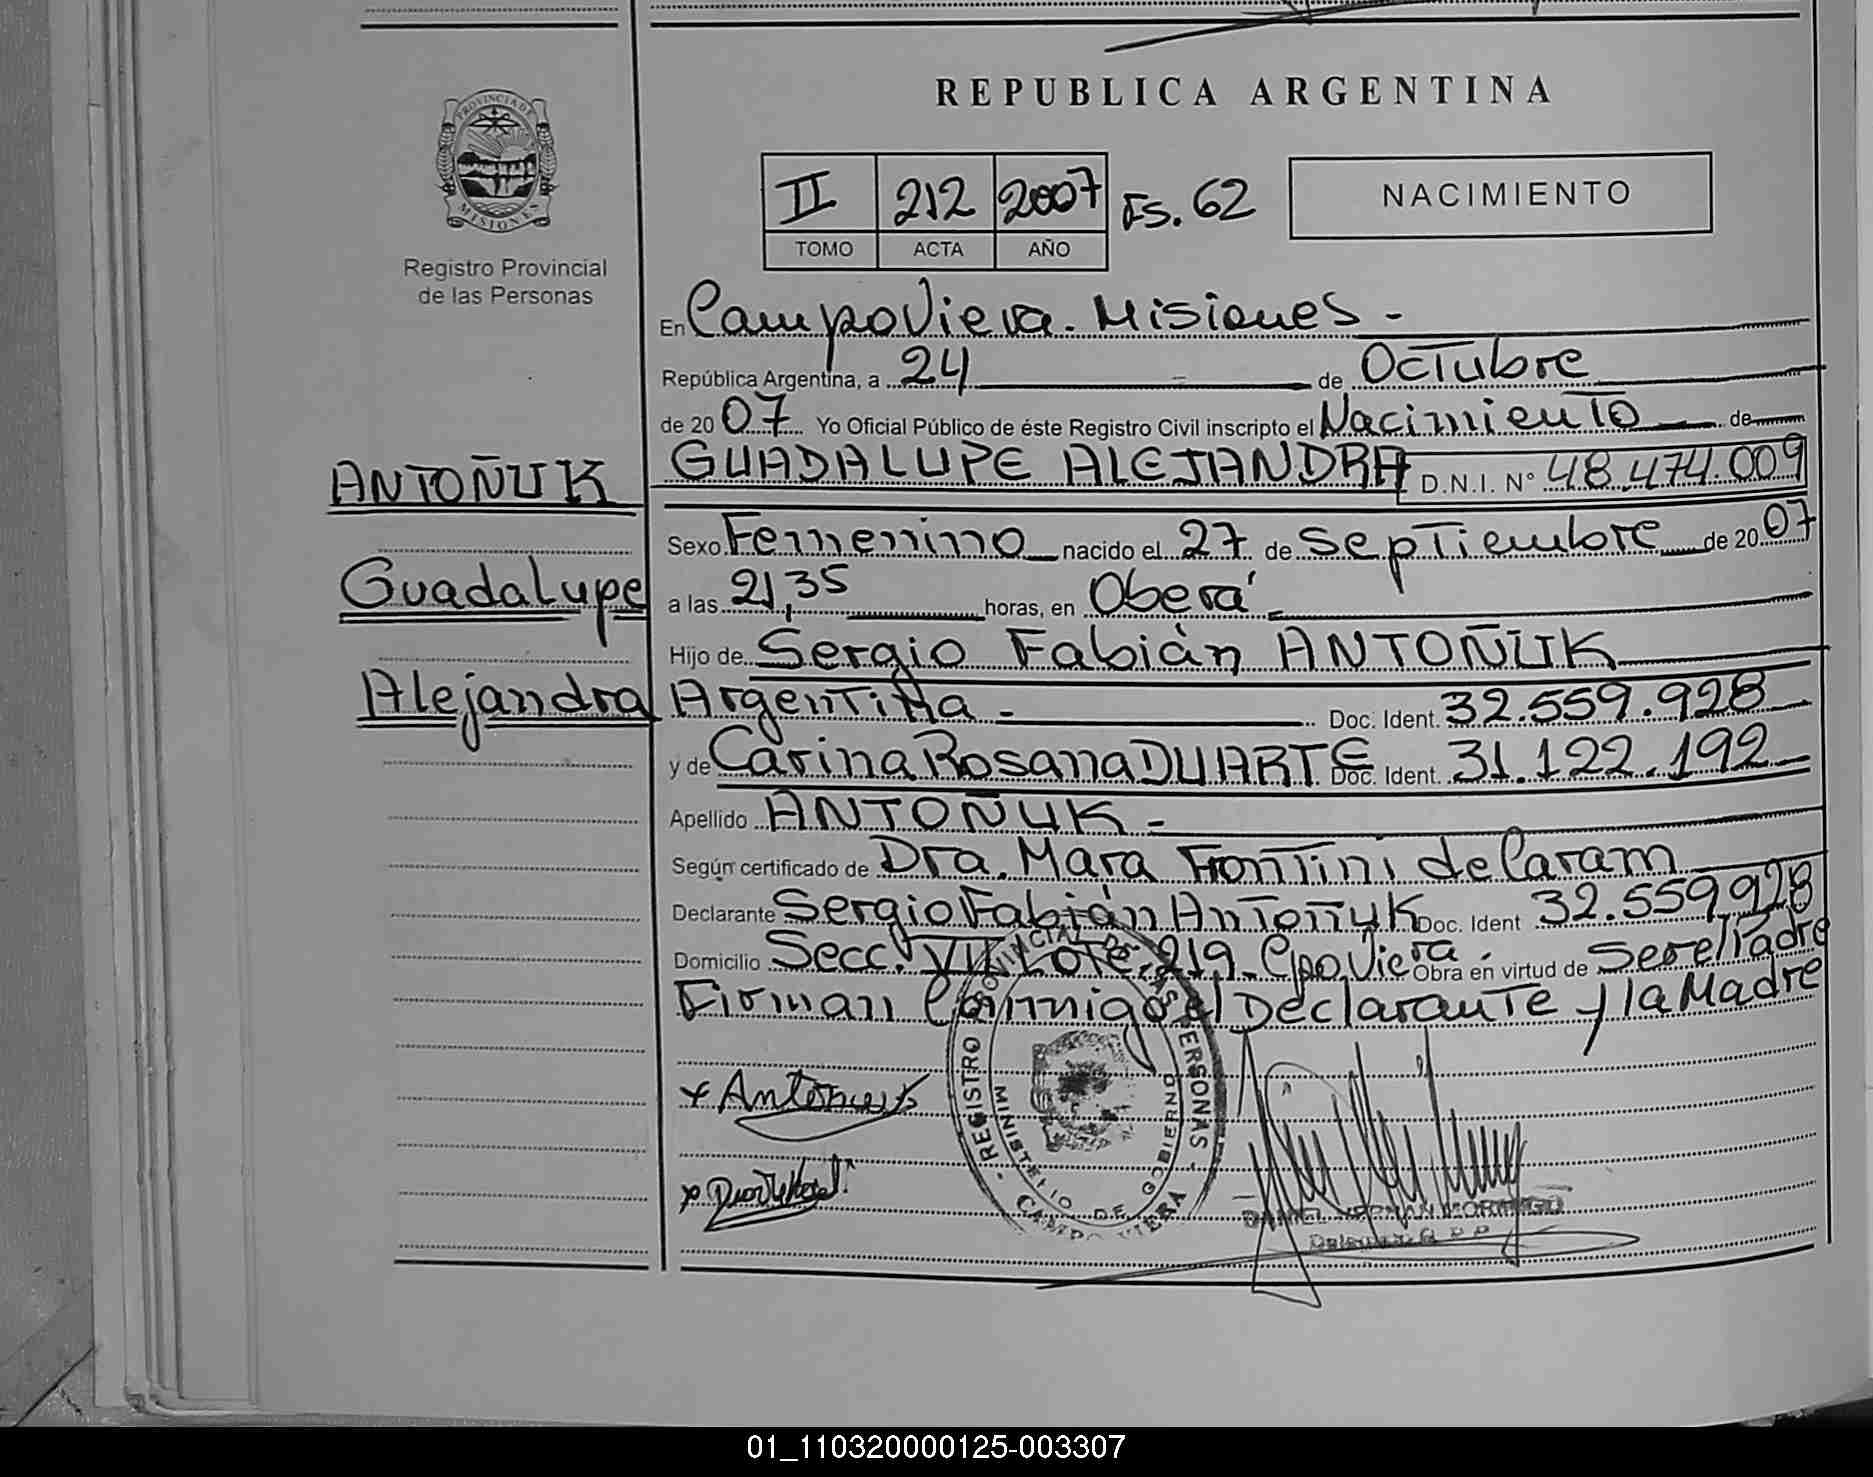 REPUBLICA ARGENTINA
PROVINCIA DE
MISIONES
Registro Provincial
de las Personas
II 212 2007 Fs. 62
TOMO ACTA AÑO
NACIMIENTO
En Campo Viera. Misiones -
República Argentina, a 24 de Octubre
de 2007 Yo Oficial Público de éste Registro Civil inscripto el Nacimiento de
ANTOÑUK
Guadalupe
Alejandra
GUADALUPE ALEJANDRA D.N.I. N° 48.474.009
Sexo Femenino nacido el 27 de Septiembre de 2007
a las 21,35 horas, en Oberá
Hijo de Sergio Fabián ANTOÑUK
Argentina - Doc. Ident. 32.559.928
y de Carina Rosana DUARTE Doc. Ident. 31.122.192
Apellido ANTOÑUK -
Según certificado de Dra. Mara Frontini de Caram
Declarante Sergio Fabián Antoñuk Doc. Ident 32.559.928
Domicilio Secc. VII Lote 219 Cpo Viera. Obra en virtud de Ser el Padre
Firman Conmigo el Declarante y la Madre
x Antoñuk
REGISTRO PROVINCIAL DE LAS PERSONAS
MINISTERIO DE GOBIERNO
CAMPO VIERA
DANIEL HERNAN
01_110320000125-003307